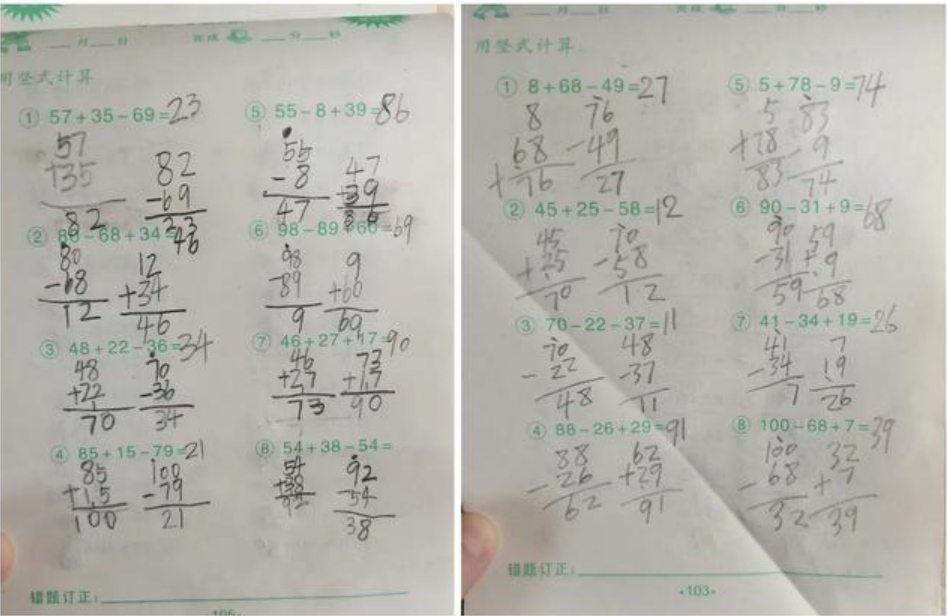 月 日 分 秒
用竖式计算
① 57+35-69=23
57
+35
82
82
-69
23
② 80-68+34=46
80
-68
12
12
+34
46
③ 48+22-36=34
48
+22
70
70
-36
34
④ 85+15-79=21
85
+15
100
100
-79
21
⑤ 55-8+39=86
55
-8
47
47
+39
86
⑥ 98-89+60=69
98
-89
9
9
+60
69
⑦ 46+27+17=90
46
+27
73
73
+17
90
⑧ 54+38-54=
54
+38
92
92
-54
38
错题订正:
月 日 分 秒
用竖式计算
① 8+68-49=27
8
+68
76
76
-49
27
② 45+25-58=12
45
+25
70
70
-58
12
③ 70-22-37=11
70
-22
48
48
-37
11
④ 88-26+29=91
88
-26
62
62
+29
91
⑤ 5+78-9=74
5
+78
83
83
-9
74
⑥ 90-31+9=68
90
-31
59
59
+9
68
⑦ 41-34+19=26
41
-34
7
7
19
26
⑧ 100-68+7=39
100
-68
32
32
+7
39
错题订正:
·103·